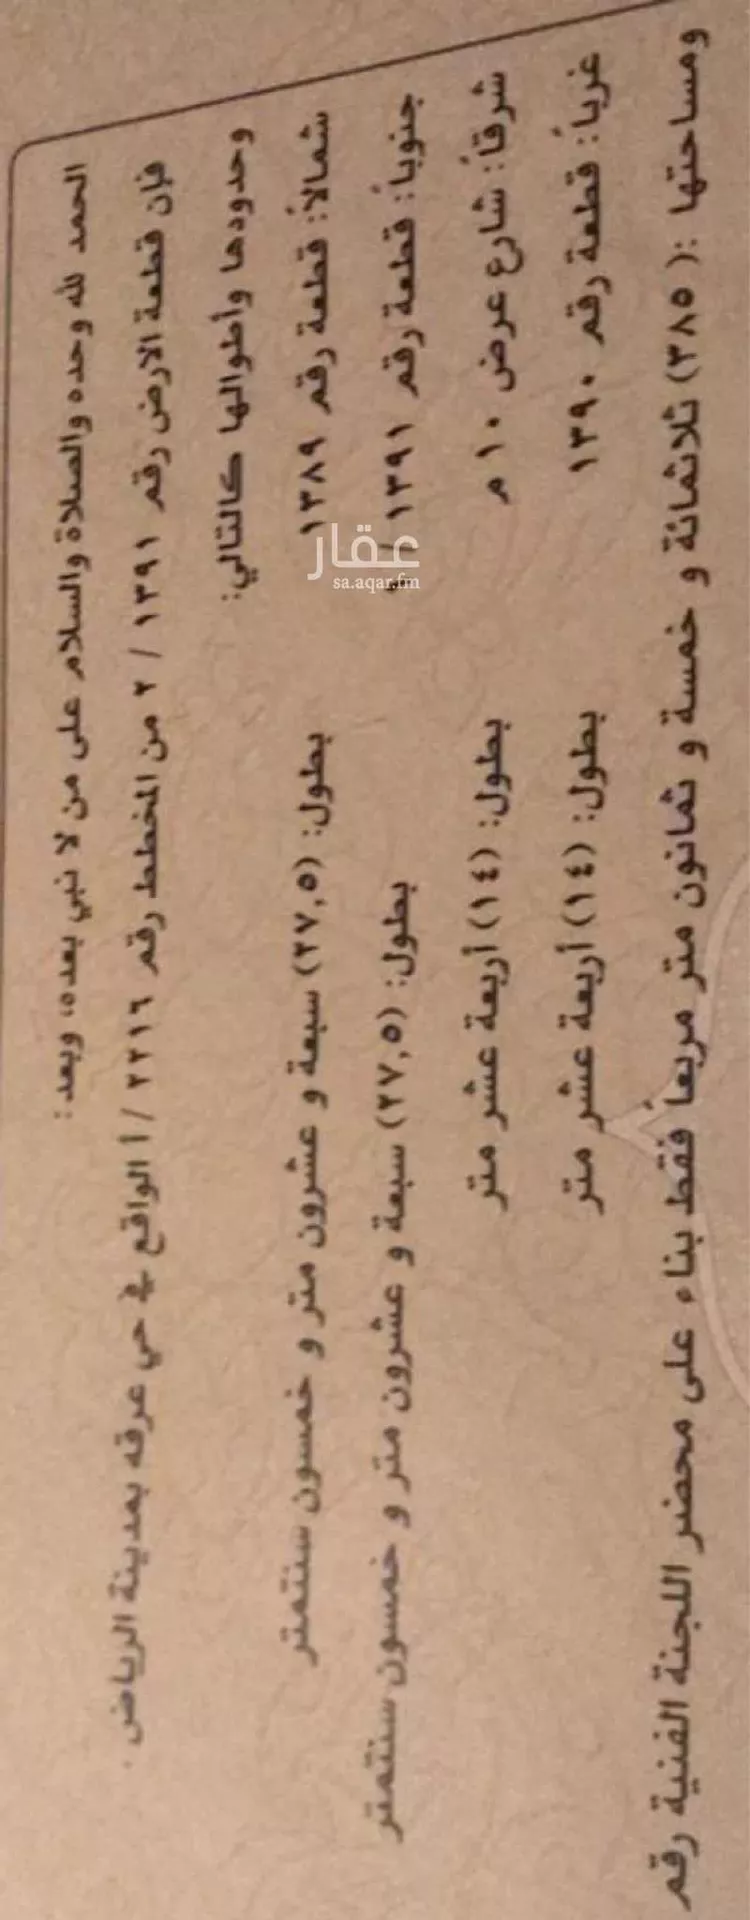 الحمد لله وحده والصلاة والسلام على من لا نبي بعده، وبعد:
فإن قطعة الارض رقم ١٣٩١ / ٢ من المخطط رقم ٢٢١٦ / أ الواقع في حي عرقه بمدينة الرياض .
وحدودها وأطوالها كالتالي:
شمالاً: قطعة رقم ١٣٨٩ بطول: (٢٧,٥) سبعة و عشرون متر و خمسون سنتمتر
جنوباً: قطعة رقم ١٣٩١ / بطول: (٢٧,٥) سبعة و عشرون متر و خمسون سنتمتر
شرقاً: شارع عرض ١٠ م بطول: (١٤) أربعة عشر متر
غرباً: قطعة رقم ١٣٩٠ بطول: (١٤) أربعة عشر متر
ومساحتها :( ٣٨٥) ثلاثمائة و خمسة و ثمانون متر مربعاً فقط بناء على محضر اللجنة الفنية رقم
عقار
sa.aqar.fm